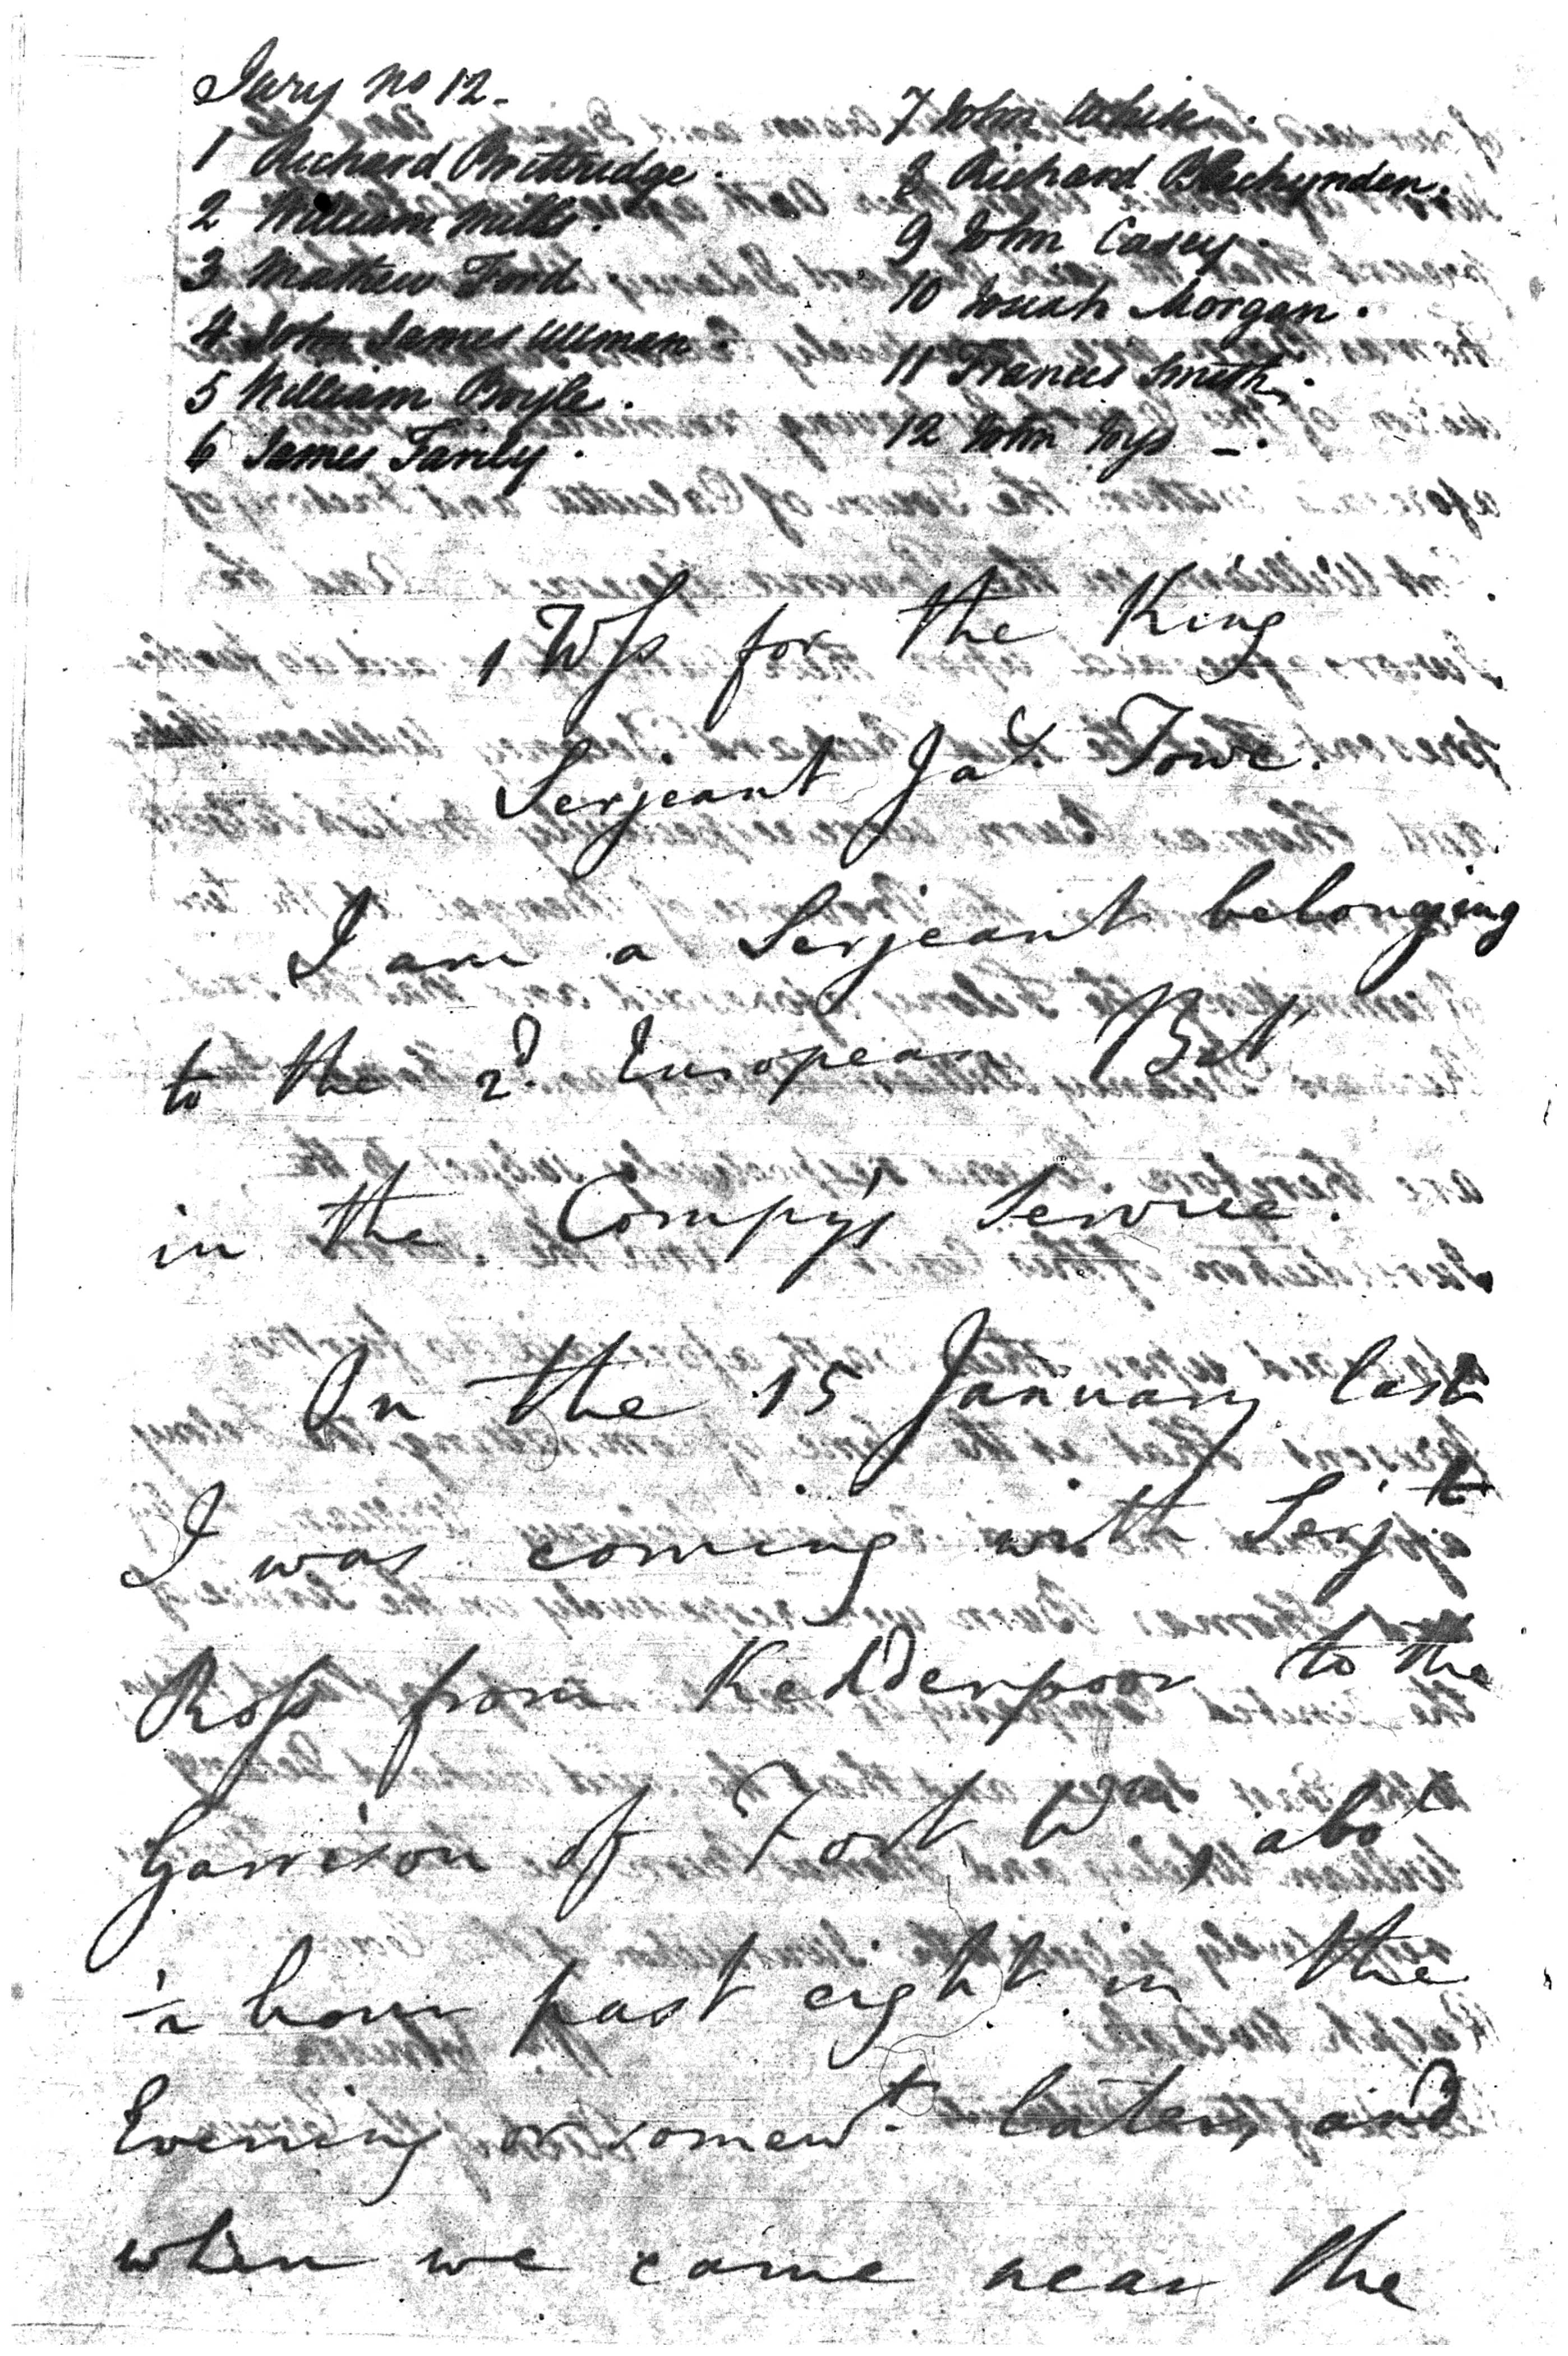 Jury no 12.
1 Richard
2 William Mills.
3 Mathew Ford
4 John James Ullman.
5 William Boyle.
6 James Fairly.
7 John White.
8 Richard Blechynden.
9 John Casey
10 Josiah Morgan.
11 Francis Smith.
12 John
1 Wss for the King
Serjeant Jas. Towe.
I am a Serjeant belonging
to the 2d. European Bat
in the Compy's Service.
On the 15 January last
I was coming with Serjt
Ross from Kedderpoor to the
Garrison of Fort Wm, abot
½ hour past eight in the
Evening or somewt. later, and
when we came near the